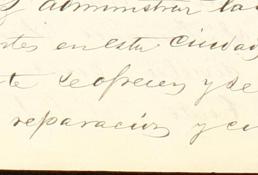 y administrar las
rtes en esta ciudad
te se ofrecen y de
reparación y cu